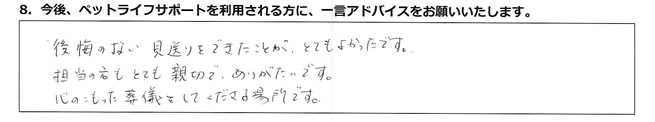 8. 今後、ペットライフサポートを利用される方に、一言アドバイスをお願いいたします。
後悔のない見送りをできたことが、とてもよかったです。
担当の方もとても親切で、ありがたいです。
心のこもった葬儀をしてくださる場所です。